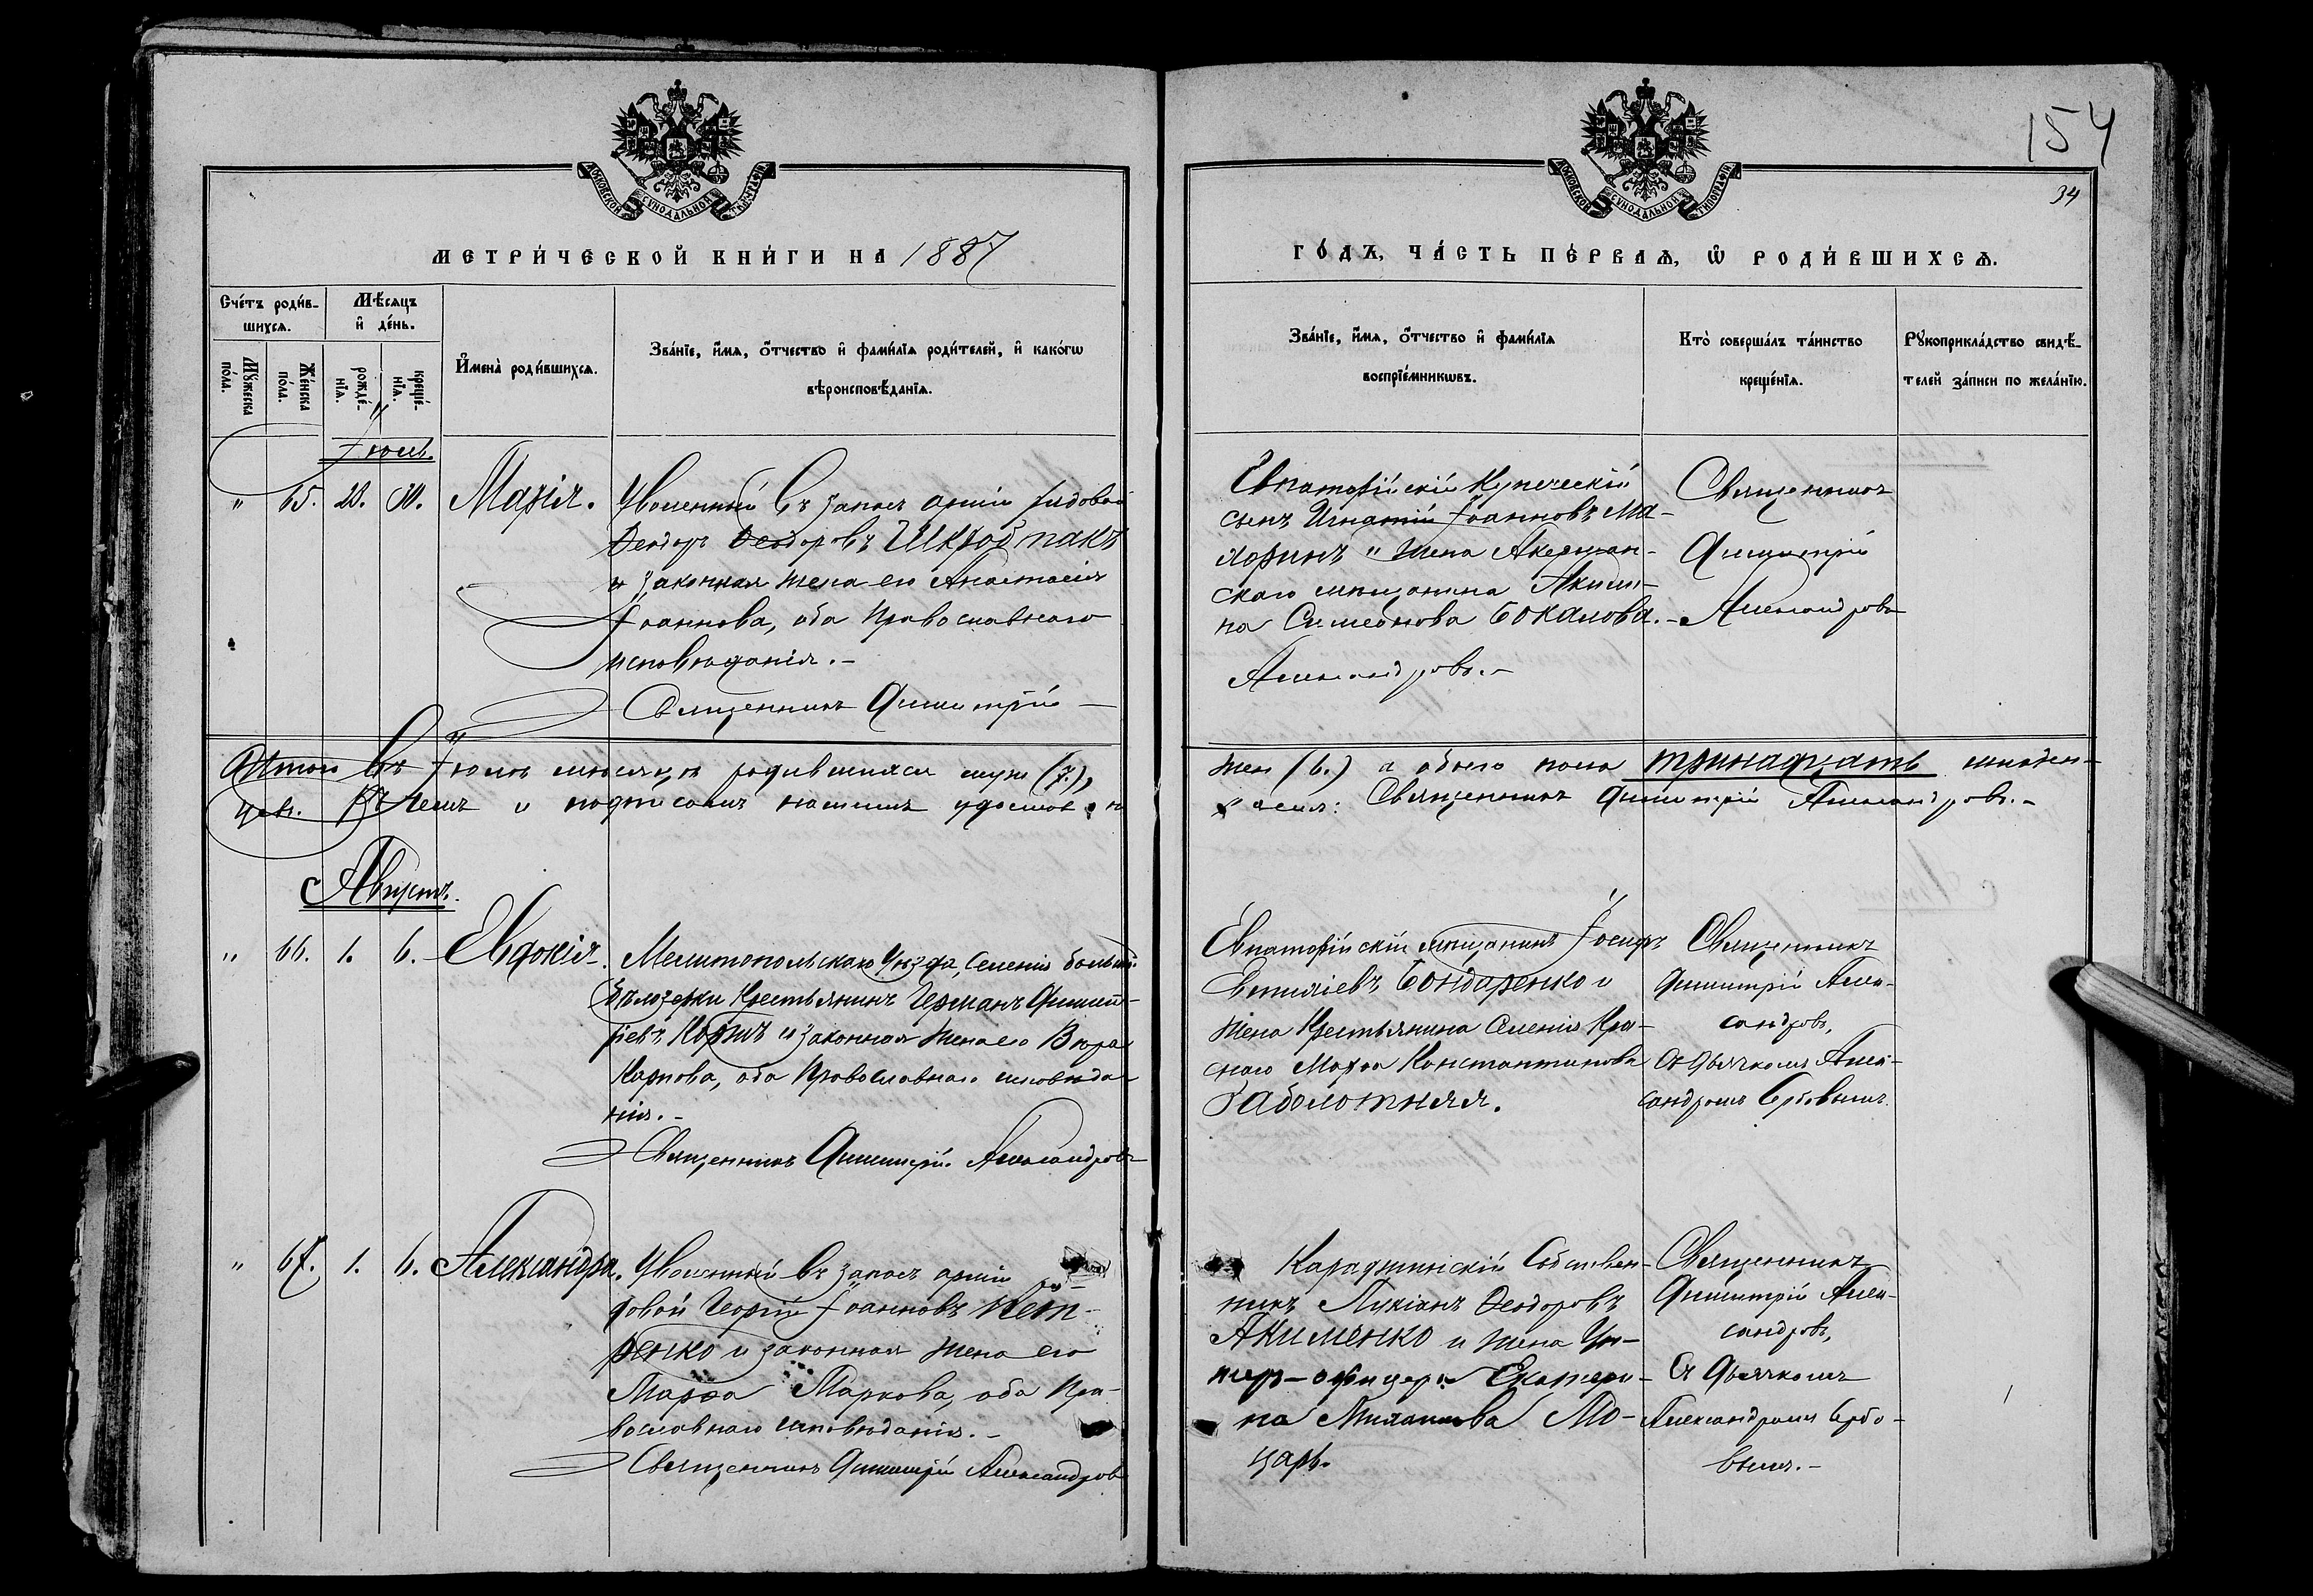 154
34
МОСКОВСКОЙ СѴНОДАЛЬНОЙ ТИПОГРАФІИ
МОСКОВСКОЙ СѴНОДАЛЬНОЙ ТИПОГРАФІИ
МЕТРИ́ЧЕСКОЙ КНИ́ГИ НА 1887
ГО́ДЪ, ЧА́СТЬ ПЕ́РВАЯ, Ѡ РОДИ́ВШИХСЯ.
Сче́тъ роди́в-
шихся.
Мѣ́сяцъ
и де́нь.
Му́жеска
по́ла.
Же́нска
по́ла.
рожде́-
нїя.
креще́-
нїя.
Имена̀ роди́вшихся.
Зва́нїе, и́мя, о́тчество и фами́лїя роди́телей, и како́гѡ
вѣроисповѣ́данїя.
Зва́нїе, и́мя, о́тчество и фами́лїя
воспрїе́мникѡвъ.
Кто̀ соверша́лъ та́инство
креще́нїя.
Рꙋкоприкла́дство свидѣ́-
телей за́писи по жела́нїю.
Іюль.
" 65. 28. 30. Марія.
Уволенный въ запасъ арміи рядовой
Ѳеодоръ Ѳеодоровъ Шкробтакъ
и законная жена его Анастасія
Іоаннова, оба Православнаго
исповѣданія.-
Священникъ Димитрій
Евпаторійскій Купеческій
сынъ Игнатій Іоанновъ Ма-
харинъ и жена Аккерман-
скаго мѣщанина Акили-
на Симеонова Бокалова.-
Александровъ.-
Священникъ
Димитрій
Александровъ
Итого въ Іюлѣ мѣсяцѣ родившихся муж (7.),
жен (6.) а обоего пола тринадцать младен-
цев. Въ чемъ и подписомъ нашимъ удостов
ряемъ: Священникъ Димитрій Александровъ.-
Августъ.
" 66. 1. 6. Евдокія.
Мелитопольскаго Уѣзда, Селенія больш.
бѣлозерки Крестьянинъ Германъ Димит-
ріевъ Коржъ и законная жена его Вѣра
Карпова, оба Православнаго исповѣда-
нія.-
Священникъ Димитрій Александровъ
Евпаторійскій мѣщанинъ Іосифъ
Бондаренко и
жена Крестьянина Селенія Крас-
наго Марѳа Константинова
Заболотняя.
Священникъ
Димитрій Алек-
сандровъ,
Съ Дьячкомъ Алек-
сандромъ Ербовымъ.
" 67. 1. 6. Александра.
Уволенный въ запасъ арміи
довой Георгій Іоанновъ Пет-
ренко и законная жена его
Марѳа Маркова, оба Пра-
вославнаго исповѣданія.-
Священникъ Димитрій Александров
Караджинскій Собствен-
никъ Лукіанъ Ѳеодоровъ
Акименко и жена Ун-
теръ-офицера Екатери-
на Мо-
царь.
Священникъ
Димитрій Алек-
сандровъ,
Съ Дьячкомъ
Александромъ Ербо-
вымъ.-